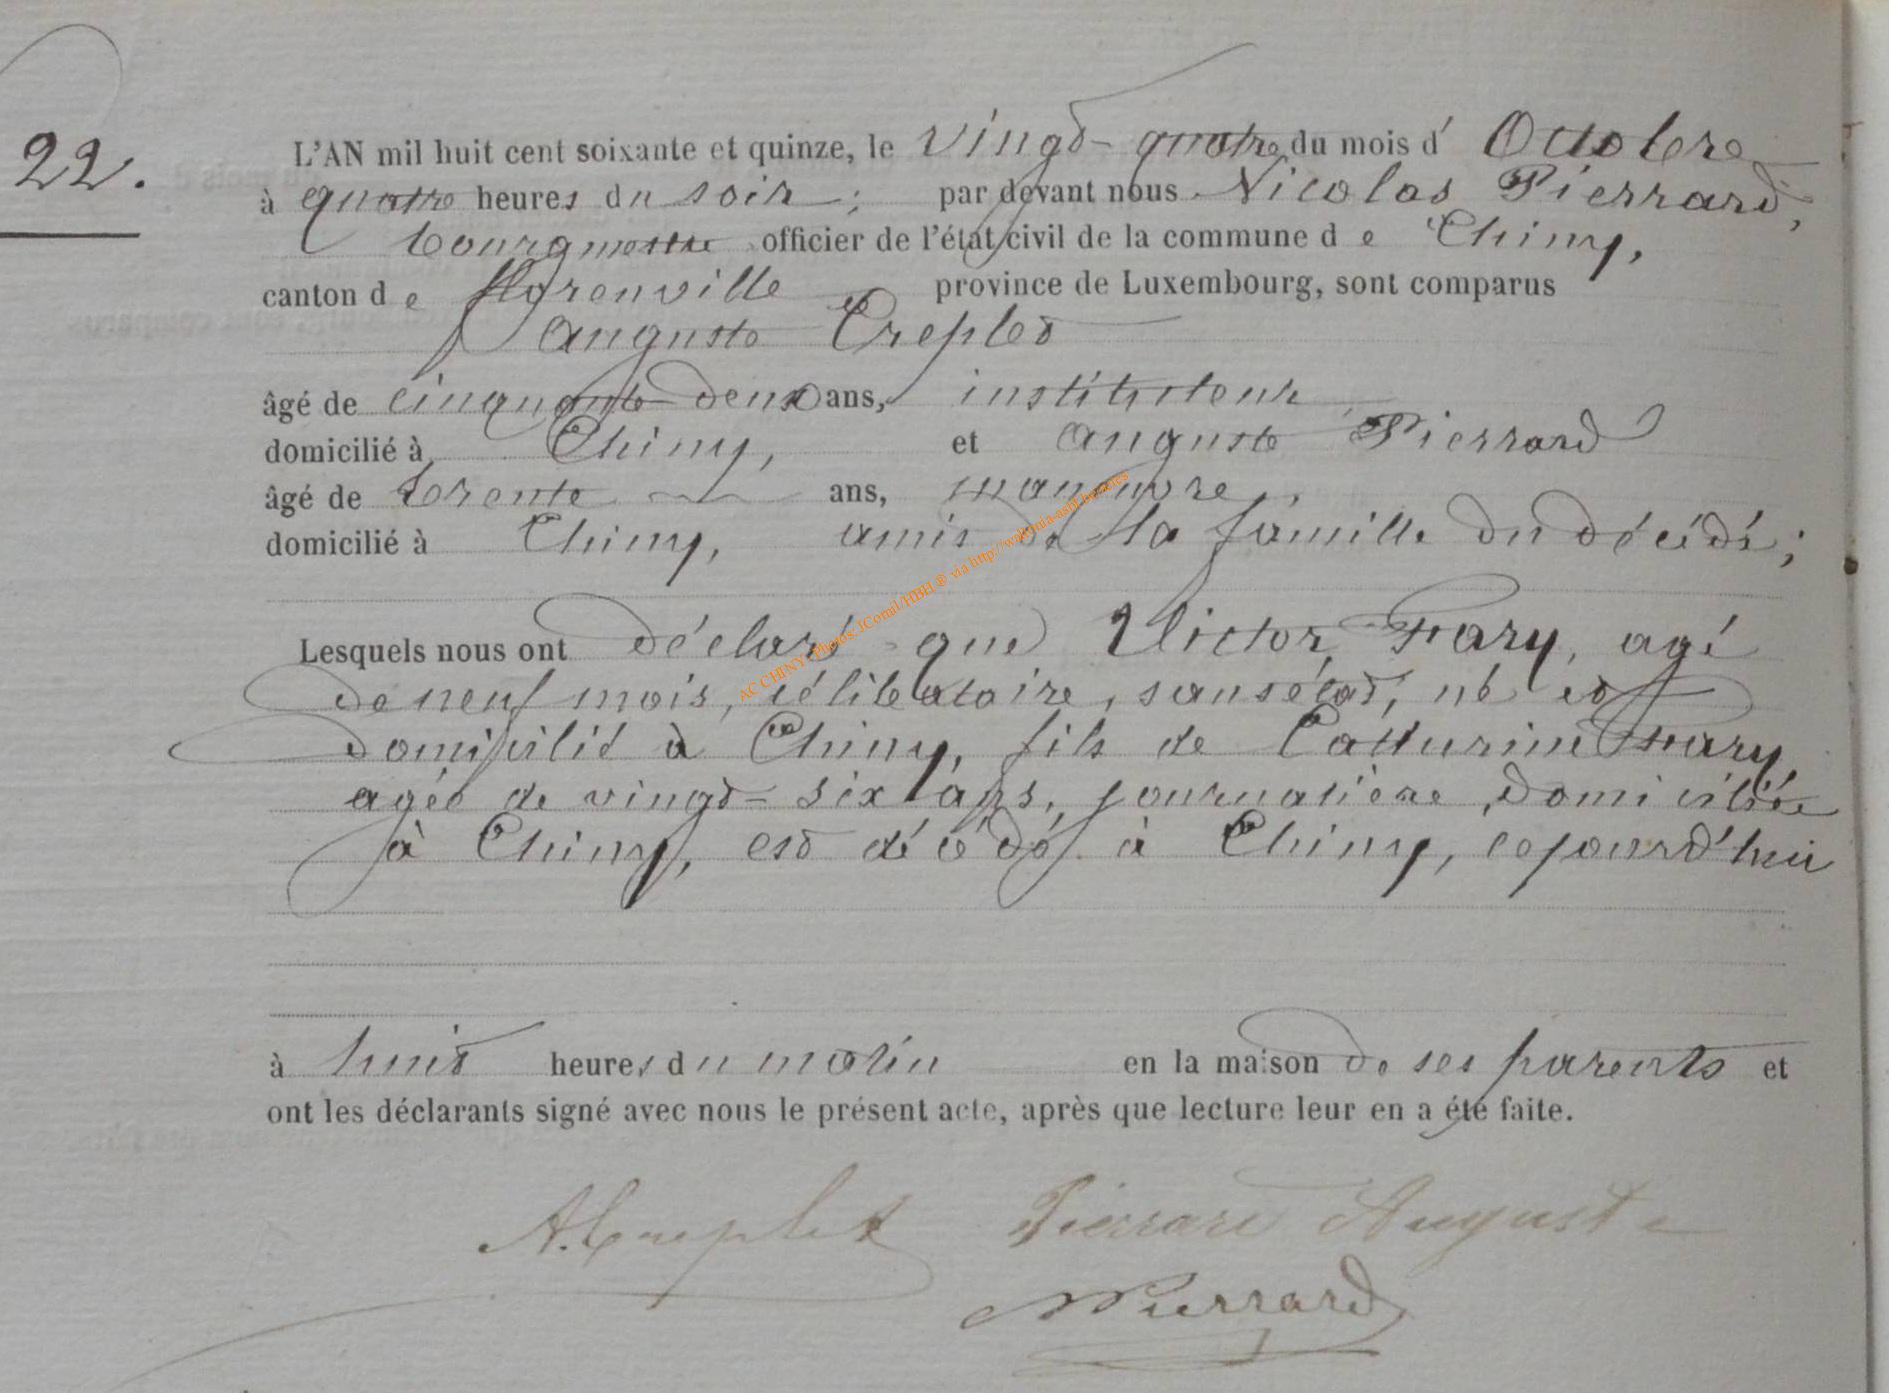 22.
L'AN mil huit cent soixante et quinze, le vingt-quatre du mois d' Octobre
à quatre heures du soir ; par devant nous Nicolas Pierrard,
bourgmestre officier de l'état civil de la commune de Chiny,
canton de Florenville province de Luxembourg, sont comparus
Auguste Creplet
âgé de cinquante-deux ans, instituteur
domicilié à Chiny, et Auguste Pierrard
âgé de trente ans, manœuvre,
domicilié à Chiny, amis de la famille du décédé ;
Lesquels nous ont déclaré que Victor Frary, agé
de neuf mois, célibataire, sans état, né et
domicilié à Chiny, fils de Catherine Frary,
agée de vingt-six ans, journalière, domiciliée
à Chiny, est décédé à Chiny, cejourd'hui
à huit heures du matin en la maison de ses parents et
ont les déclarants signé avec nous le présent acte, après que lecture leur en a été faite.
A. Creplet Pierrard Auguste
N Pierrard
AC CHINY - Photos: JComil/HBH ® via http://wallonia-asbl.be/actes